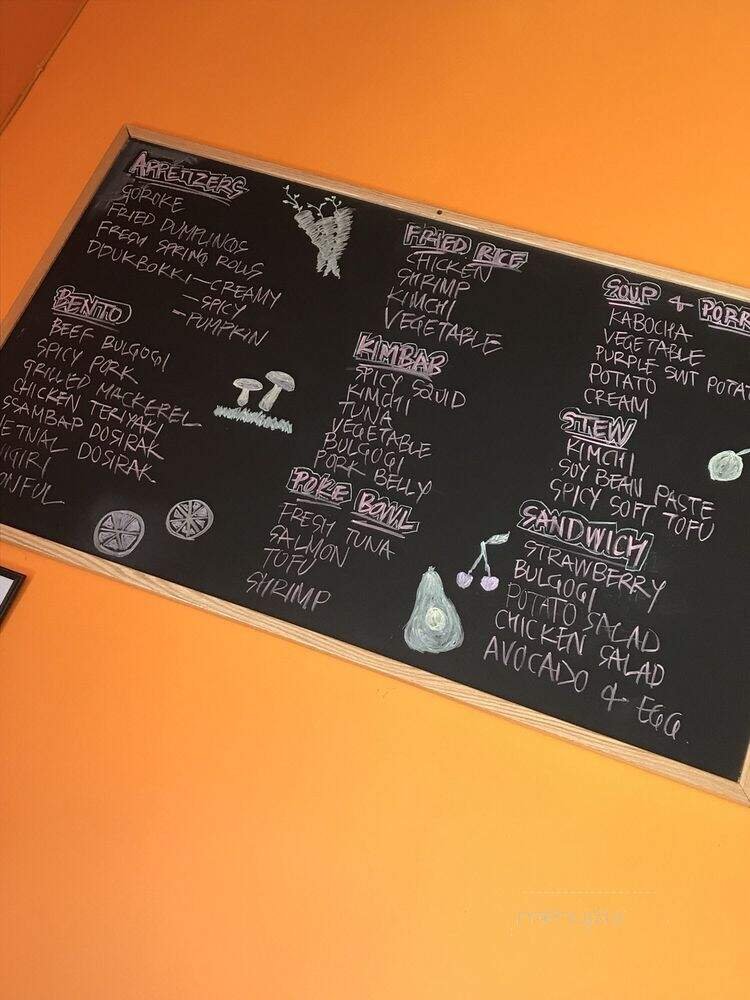 APPETIZERS
GOROKE
FRIED DUMPLINGS
FRESH SPRING ROLLS
DDUKBOKKI—CREAMY
—SPICY
—PUMPKIN
BENTO
BEEF BULGOGI
SPICY PORK
GRILLED MACKEREL
CHICKEN TERIYAKI
SSAMBAP DOSIRAK
DOSIRAK
FRIED RICE
CHICKEN
SHRIMP
KIMCHI
VEGETABLE
KIMBAB
SPICY SQUID
KIMCHI
TUNA
VEGETABLE
BULGOGI
PORK BELLY
POKE BOWL
FRESH TUNA
SALMON
TOFU
SHRIMP
SOUP & PORR
KABOCHA
VEGETABLE
PURPLE SWT POTAT
POTATO
CREAM
STEW
KIMCHI
SOY BEAN PASTE
SPICY SOFT TOFU
SANDWICH
STRAWBERRY
BULGOGI
POTATO SALAD
CHICKEN SALAD
AVOCADO & EGG